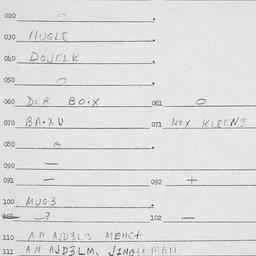 020 0
030 NUGLE
040 DOJFIK
050 0
060 DER BO·X 061 0
070 BA·XU 071 NOX KLEEN3
080 0
090 —
091 — 092 +
100 MUG3
101 102 —
110 AN AJD3L3 MENCH
111 AN AJD3LM, J1NGER MAN